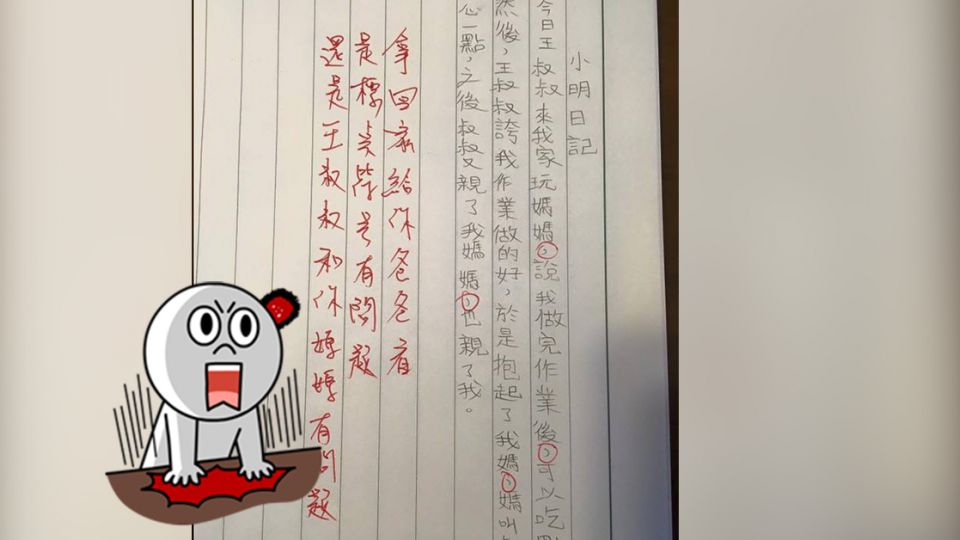 小明日記
今日王叔叔來我家玩媽媽,說我做完作業後,可以吃
然後,王叔叔誇我作業做的好,於是抱起了我媽,媽叫
心一點,之後叔叔親了我媽媽,也親了我。
拿回家給你爸爸看
是標点符号有問題
還是王叔叔和你媽媽有問題